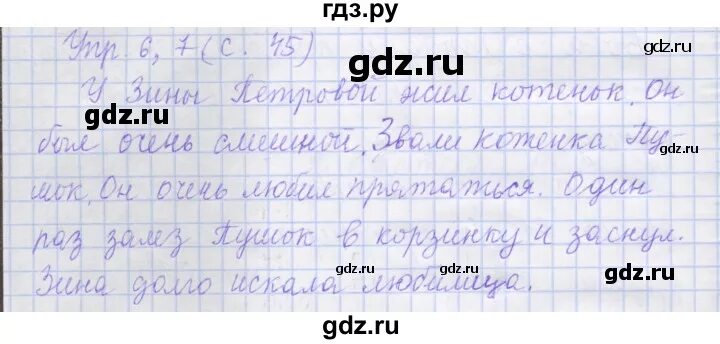 гдз.ру
Упр. 6, 7 (с. 45)
gdz.ru
У Зины Петровой жил котенок. Он
gdz.ru
был очень смешной. Звали котенка Пу-
gdz.ru
шок. Он очень любил прятаться. Один
раз залез Пушок в корзинку и заснул.
gdz.ru
gdz.ru
gdz.ru
Зина долго искала любимца.
gdz.ru